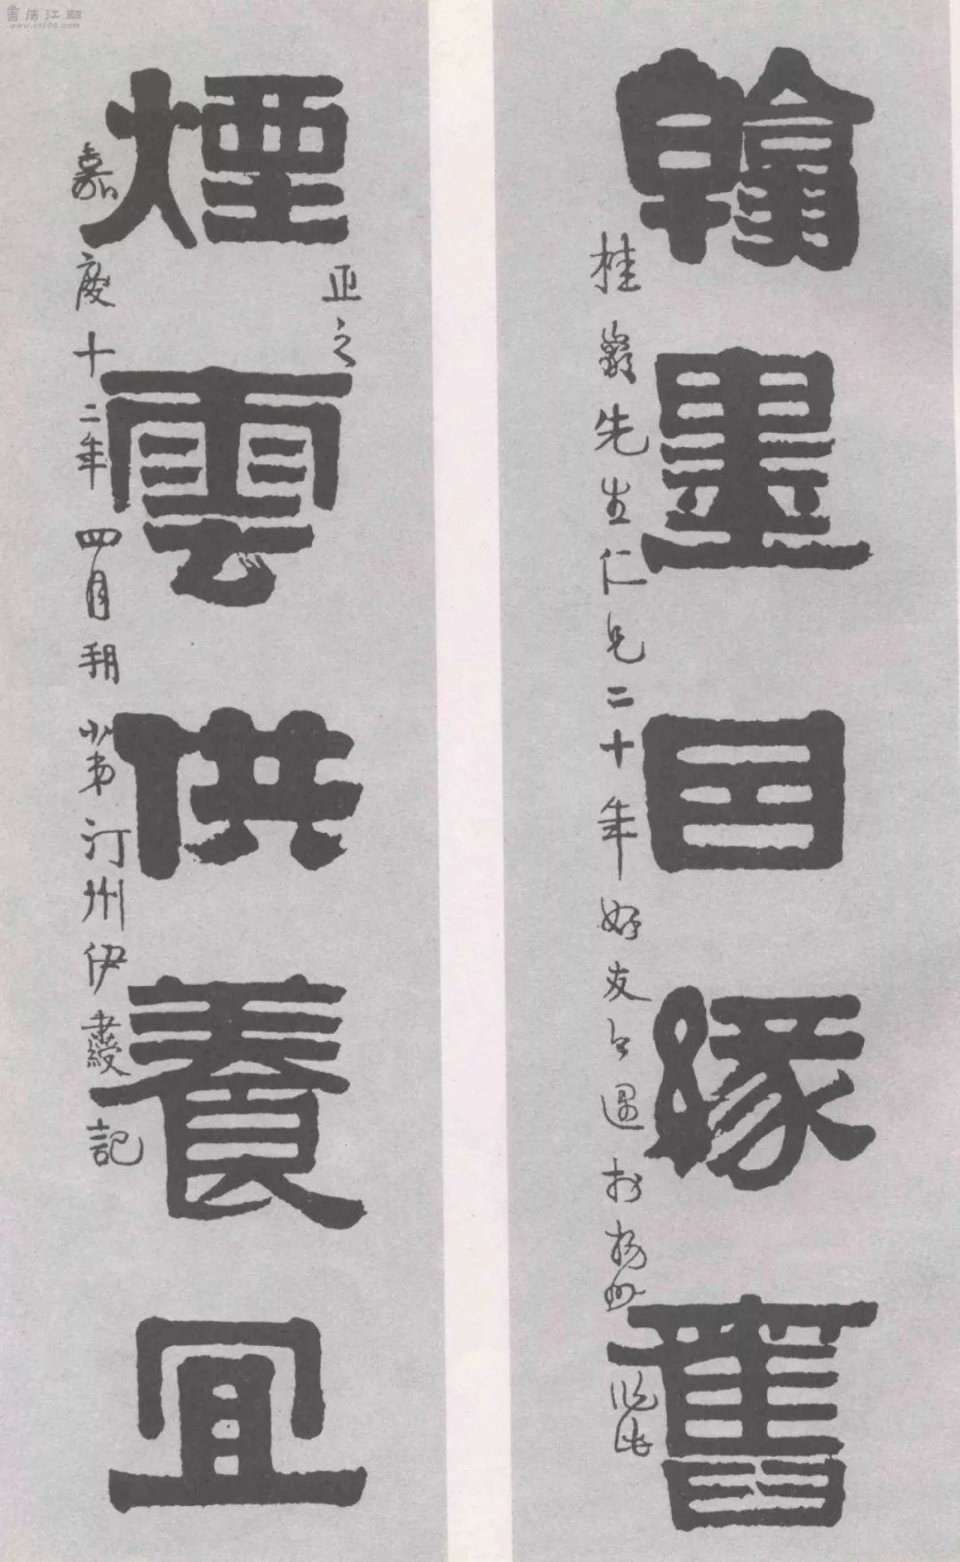 翰墨因緣舊
桂巖先生仁兄二十年好友今遇於揚州作此
正之
煙雲供養宜
嘉慶十二年四月朔愚弟汀州伊秉綬記
書法江湖